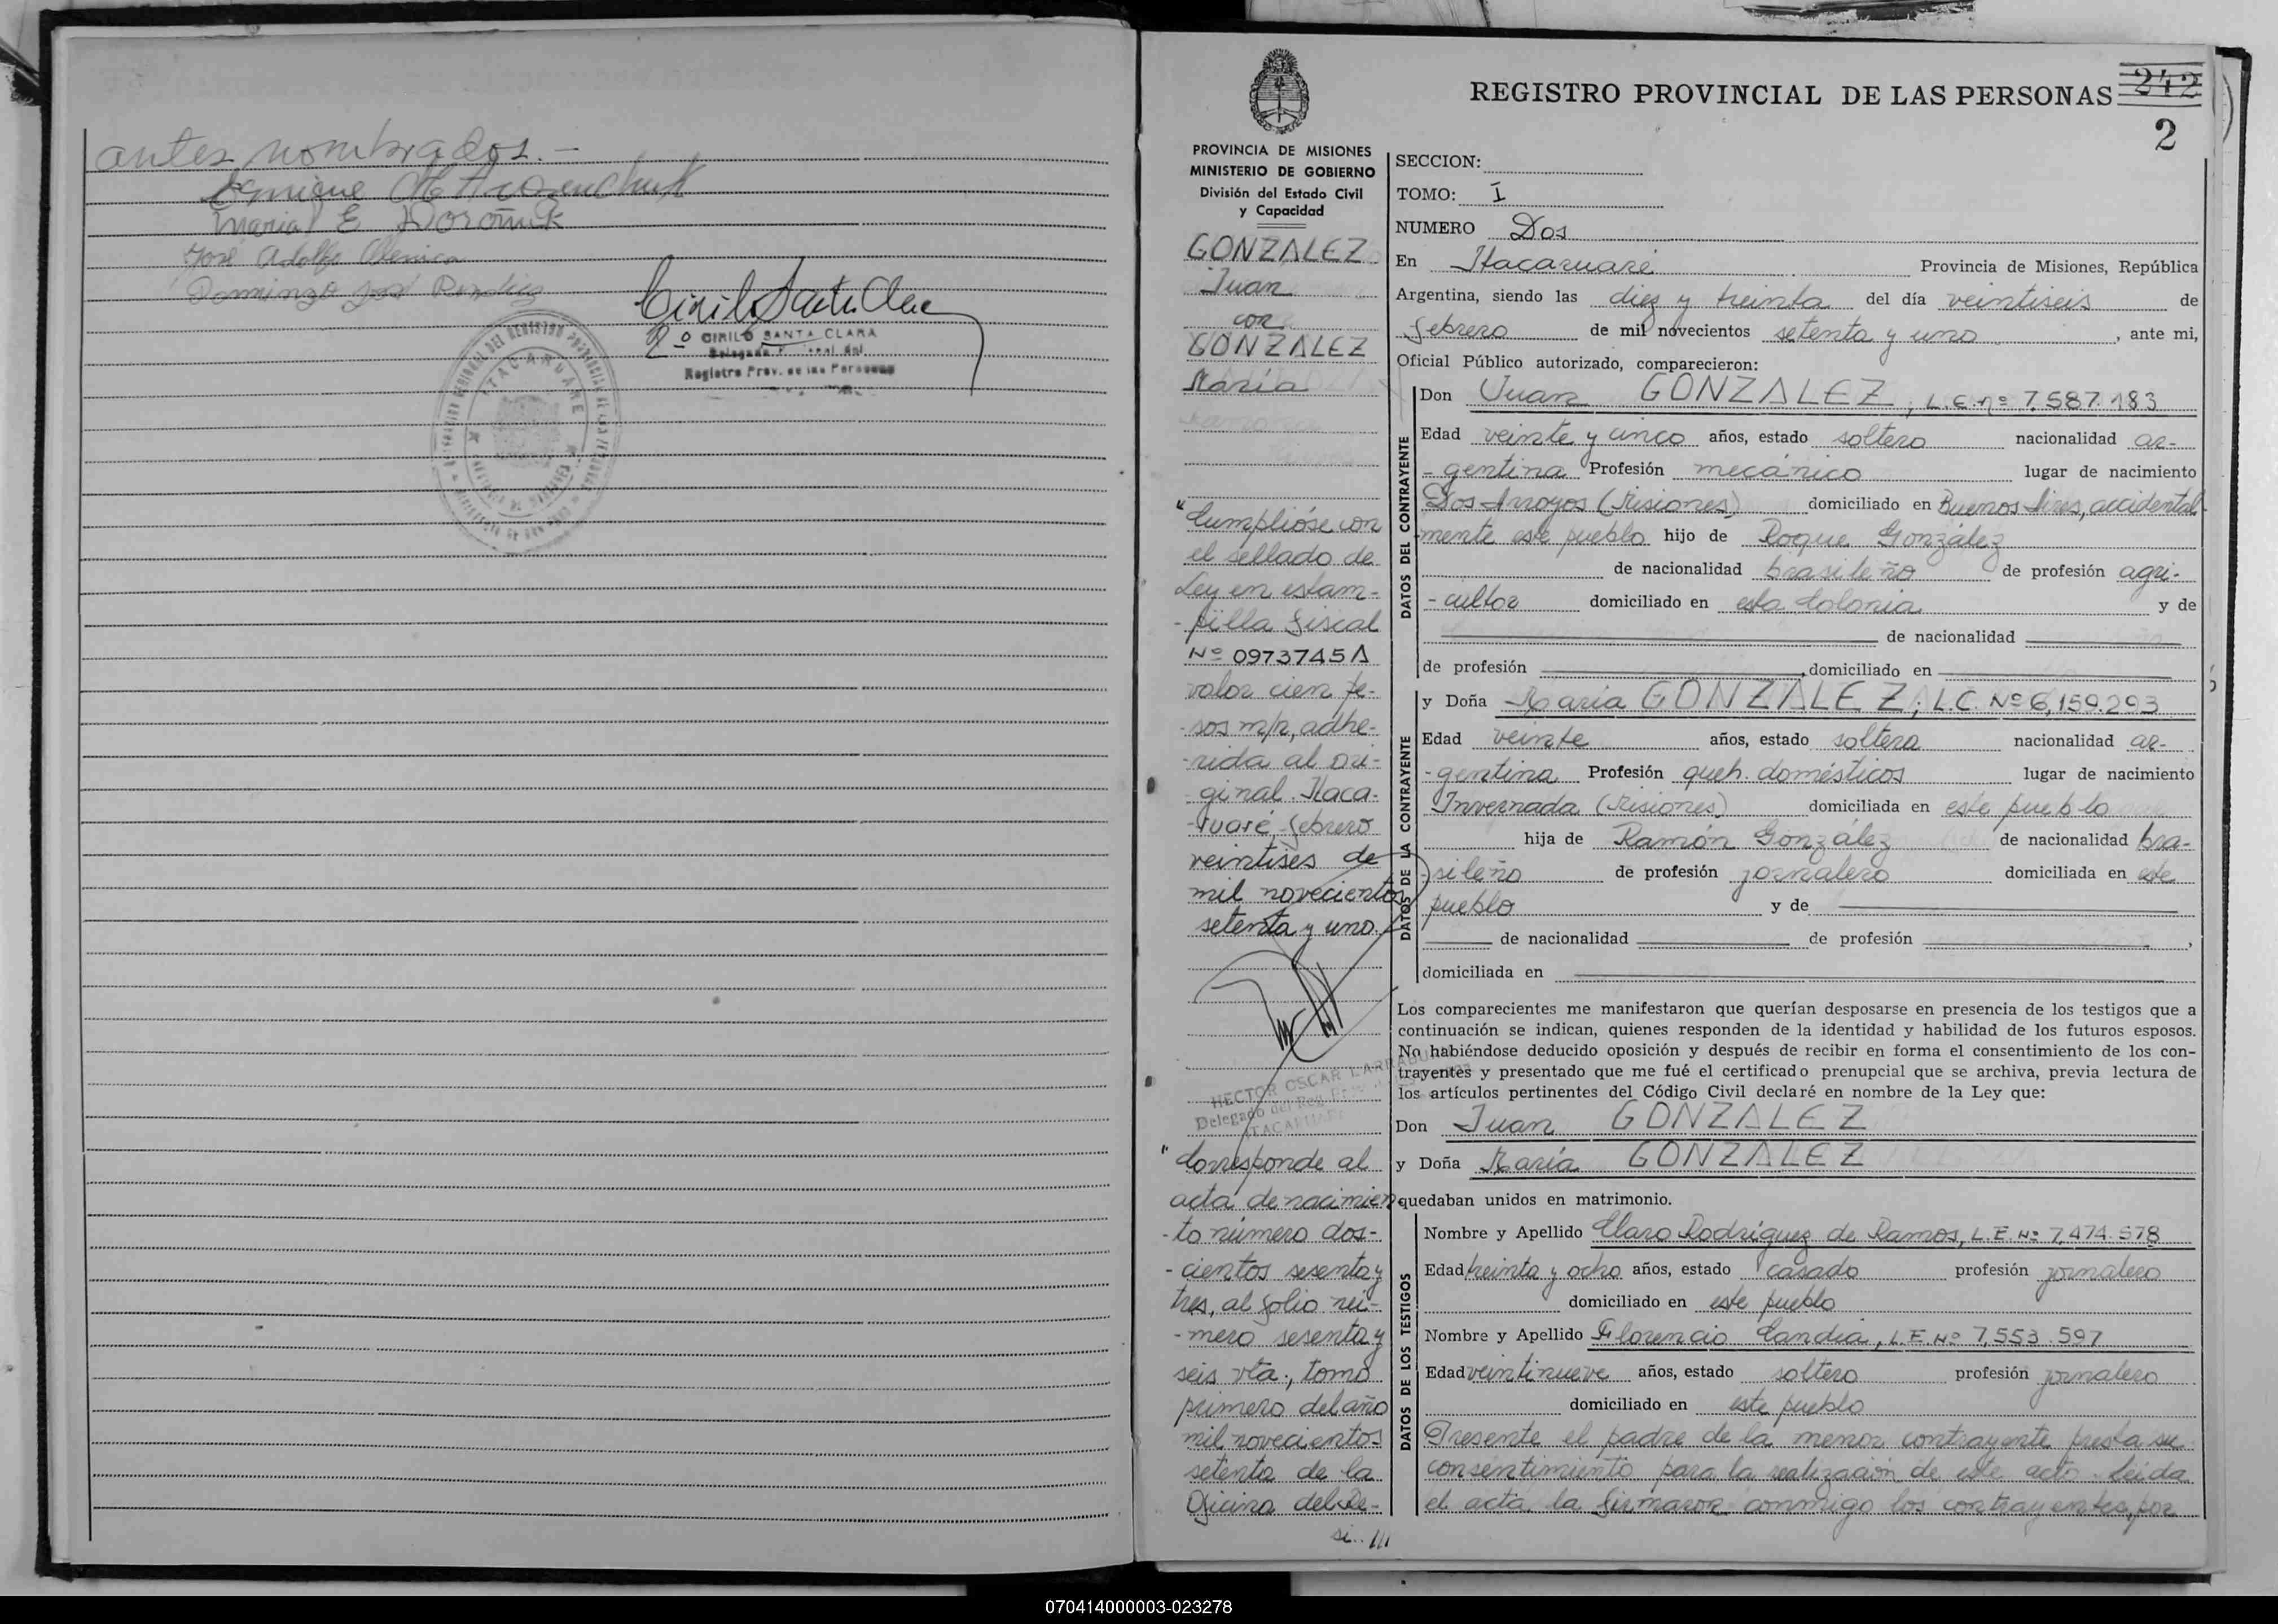 antes nombrados.-
Enrique
Maria E Doroñuk
José Adolfo
Domingo José
Cirilo Santa Clara
CIRILO SANTA CLARA
Registro Prov. de las Personas
ITACARUARE
242
2
REGISTRO PROVINCIAL DE LAS PERSONAS
PROVINCIA DE MISIONES
MINISTERIO DE GOBIERNO
División del Estado Civil
y Capacidad
GONZALEZ
Juan
con
GONZALEZ
María
"Cumplióse con
el sellado de
Ley en estam-
-pilla fiscal
Nº 0973745A
valor cien pe-
-sos m/n, adhe-
-rida al ori-
ginal. Itaca-
-ruaré, febrero
veintiseis de
mil novecientos
setenta y uno.
HECTOR OSCAR LARRABURU
Delegado del Reg.
ITACARUARE
"Corresponde al
acta de nacimien-
-to número dos-
-cientos sesenta y
tres, al folio nú-
-mero sesenta y
seis vta., tomo
primero del año
mil novecientos
setenta de la
Oficina del Re-
si.. ///
SECCION:
TOMO: I
NUMERO Dos
En Itacaruaré Provincia de Misiones, República
Argentina, siendo las diez y treinta del día veintiseis de
febrero de mil novecientos setenta y uno, ante mi,
Oficial Público autorizado, comparecieron:
DATOS DEL CONTRAYENTE
Don Juan GONZALEZ, L.E. nº 7.587.183
Edad veinte y cinco años, estado soltero nacionalidad ar-
-gentina Profesión mecánico lugar de nacimiento
Dos Arroyos (Misiones) domiciliado en Buenos Aires, accidental-
mente este pueblo hijo de Roque González
de nacionalidad brasileño de profesión agri-
-cultor domiciliado en esta Colonia y de
de nacionalidad
de profesión , domiciliado en
DATOS DE LA CONTRAYENTE
y Doña María GONZALEZ, L.C. Nº 6,159.293
Edad veinte años, estado soltera nacionalidad ar-
-gentina Profesión queh. domésticos lugar de nacimiento
Invernada (Misiones) domiciliada en este pueblo
hija de Ramón González de nacionalidad bra-
-sileño de profesión jornalero domiciliada en este
pueblo y de
de nacionalidad de profesión ,
domiciliada en
Los comparecientes me manifestaron que querían desposarse en presencia de los testigos que a
continuación se indican, quienes responden de la identidad y habilidad de los futuros esposos.
No habiéndose deducido oposición y después de recibir en forma el consentimiento de los con-
trayentes y presentado que me fué el certificado prenupcial que se archiva, previa lectura de
los artículos pertinentes del Código Civil declaré en nombre de la Ley que:
Don Juan GONZALEZ
y Doña María GONZALEZ
quedaban unidos en matrimonio.
DATOS DE LOS TESTIGOS
Nombre y Apellido Claro Rodríguez de Ramos, L.E. Nº 7,474.578
Edad treinta y ocho años, estado casado profesión jornalero
domiciliado en este pueblo
Nombre y Apellido Florencio Candia, L.E. Nº 7,553.597
Edad veintinueve años, estado soltero profesión jornalero
domiciliado en este pueblo
Presente el padre de la menor contrayente presta su
consentimiento para la realización de este acto. Leída
el acta la firmaron conmigo los contrayentes, por
070414000003-023278